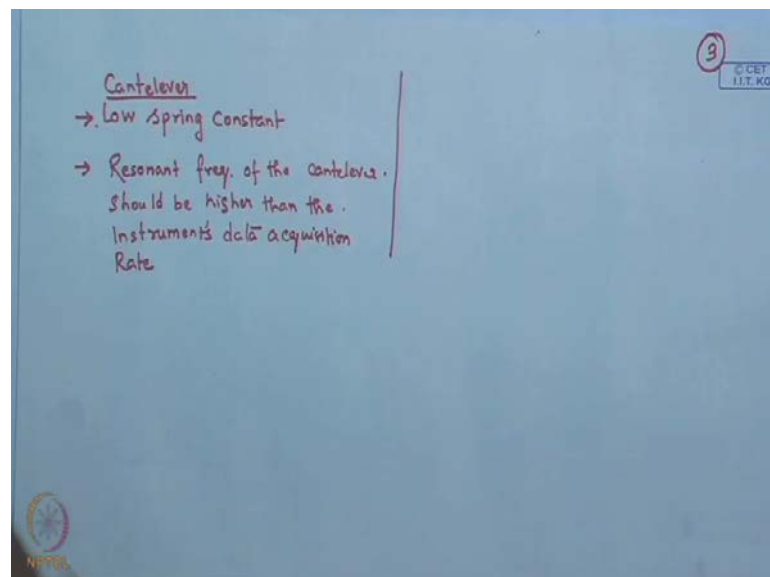 3
© CET
I.I.T. KG
Cantelever
→. Low Spring Constant
→ Resonant freq. of the cantelever.
Should be higher than the.
Instrument's data acquisition
Rate
NPTEL